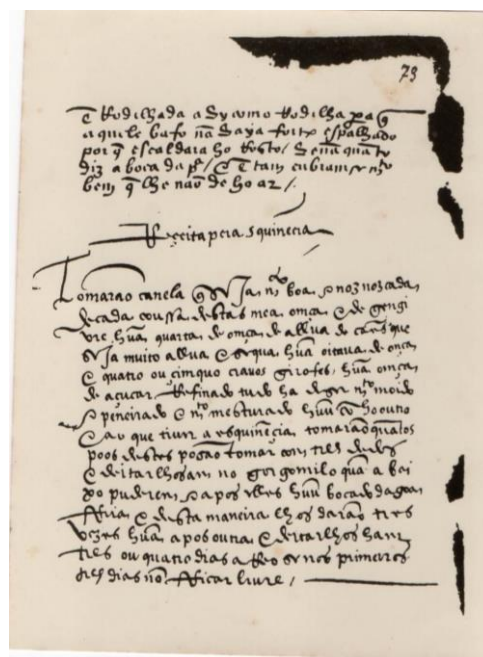 73
e Rodilhada asy como Rodilha pa q
aquele bafo não saya forte espalhado
por q escaldara ho Rosto / senã quãto
diz a boca da pª / E tam cubramse mto
bem q lhe não de ho ar /.
Reçeita pera squinẽcia
Tomarão canela q seja mto boa e noz nozcada
de cada coussa destas mea omça e de gengi
vre hũa quarta de omça de allva de cães que
seja muito allva e sequa hũa oitava de onça
e quatro ou çimquo cravos girofes / hũa omça
de açucar Refinado tudo ha de ser mto moido
e peneirado e mto mesturado hũu com ho outro
e ao que tiver a esquinẽcia tomarão quãtos
poos destes posão tomar com tres dedos
e deitarlhosam no gorgomilo quã a bai
xo puderem e apos elles hũu bocado dagoa
fria e desta maneira lhos darão tres
vezes hũa apos outra e deitarlhos ham
tres ou quatro dias a Reo se nos primeiros
tres dias não ficar livre /